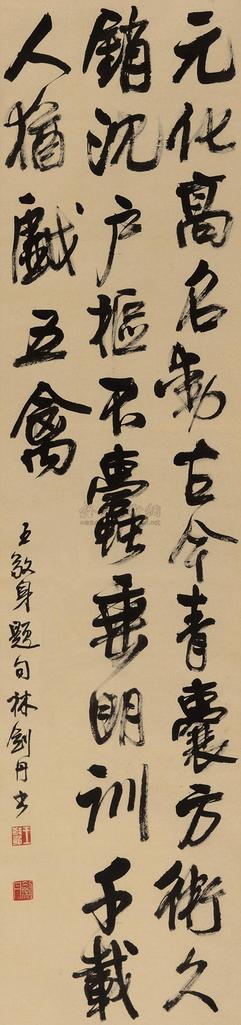 元化高名動古今青囊方術久
銷沈户樞不蠹垂明訓千載
人猶戲五禽
王敬身題句林劍丹書